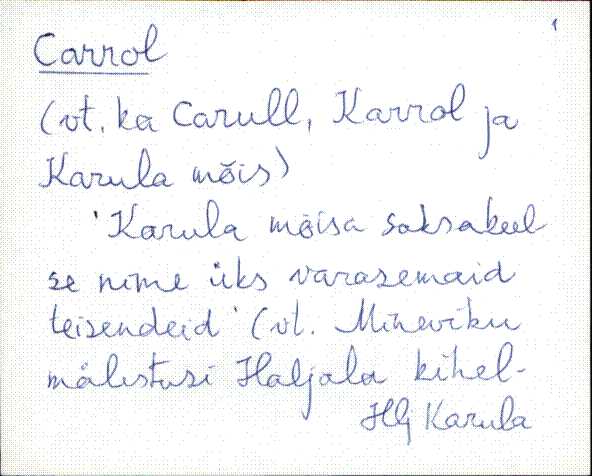 1
Carrol
(vt. ka Carull, Karrol ja
Karula mõis)
'Karula mõisa saksakeel
se nime üks varasemaid
teisendeid' (vt. Mineviku
mälestusi Haljala kihel-
Hlj Karula